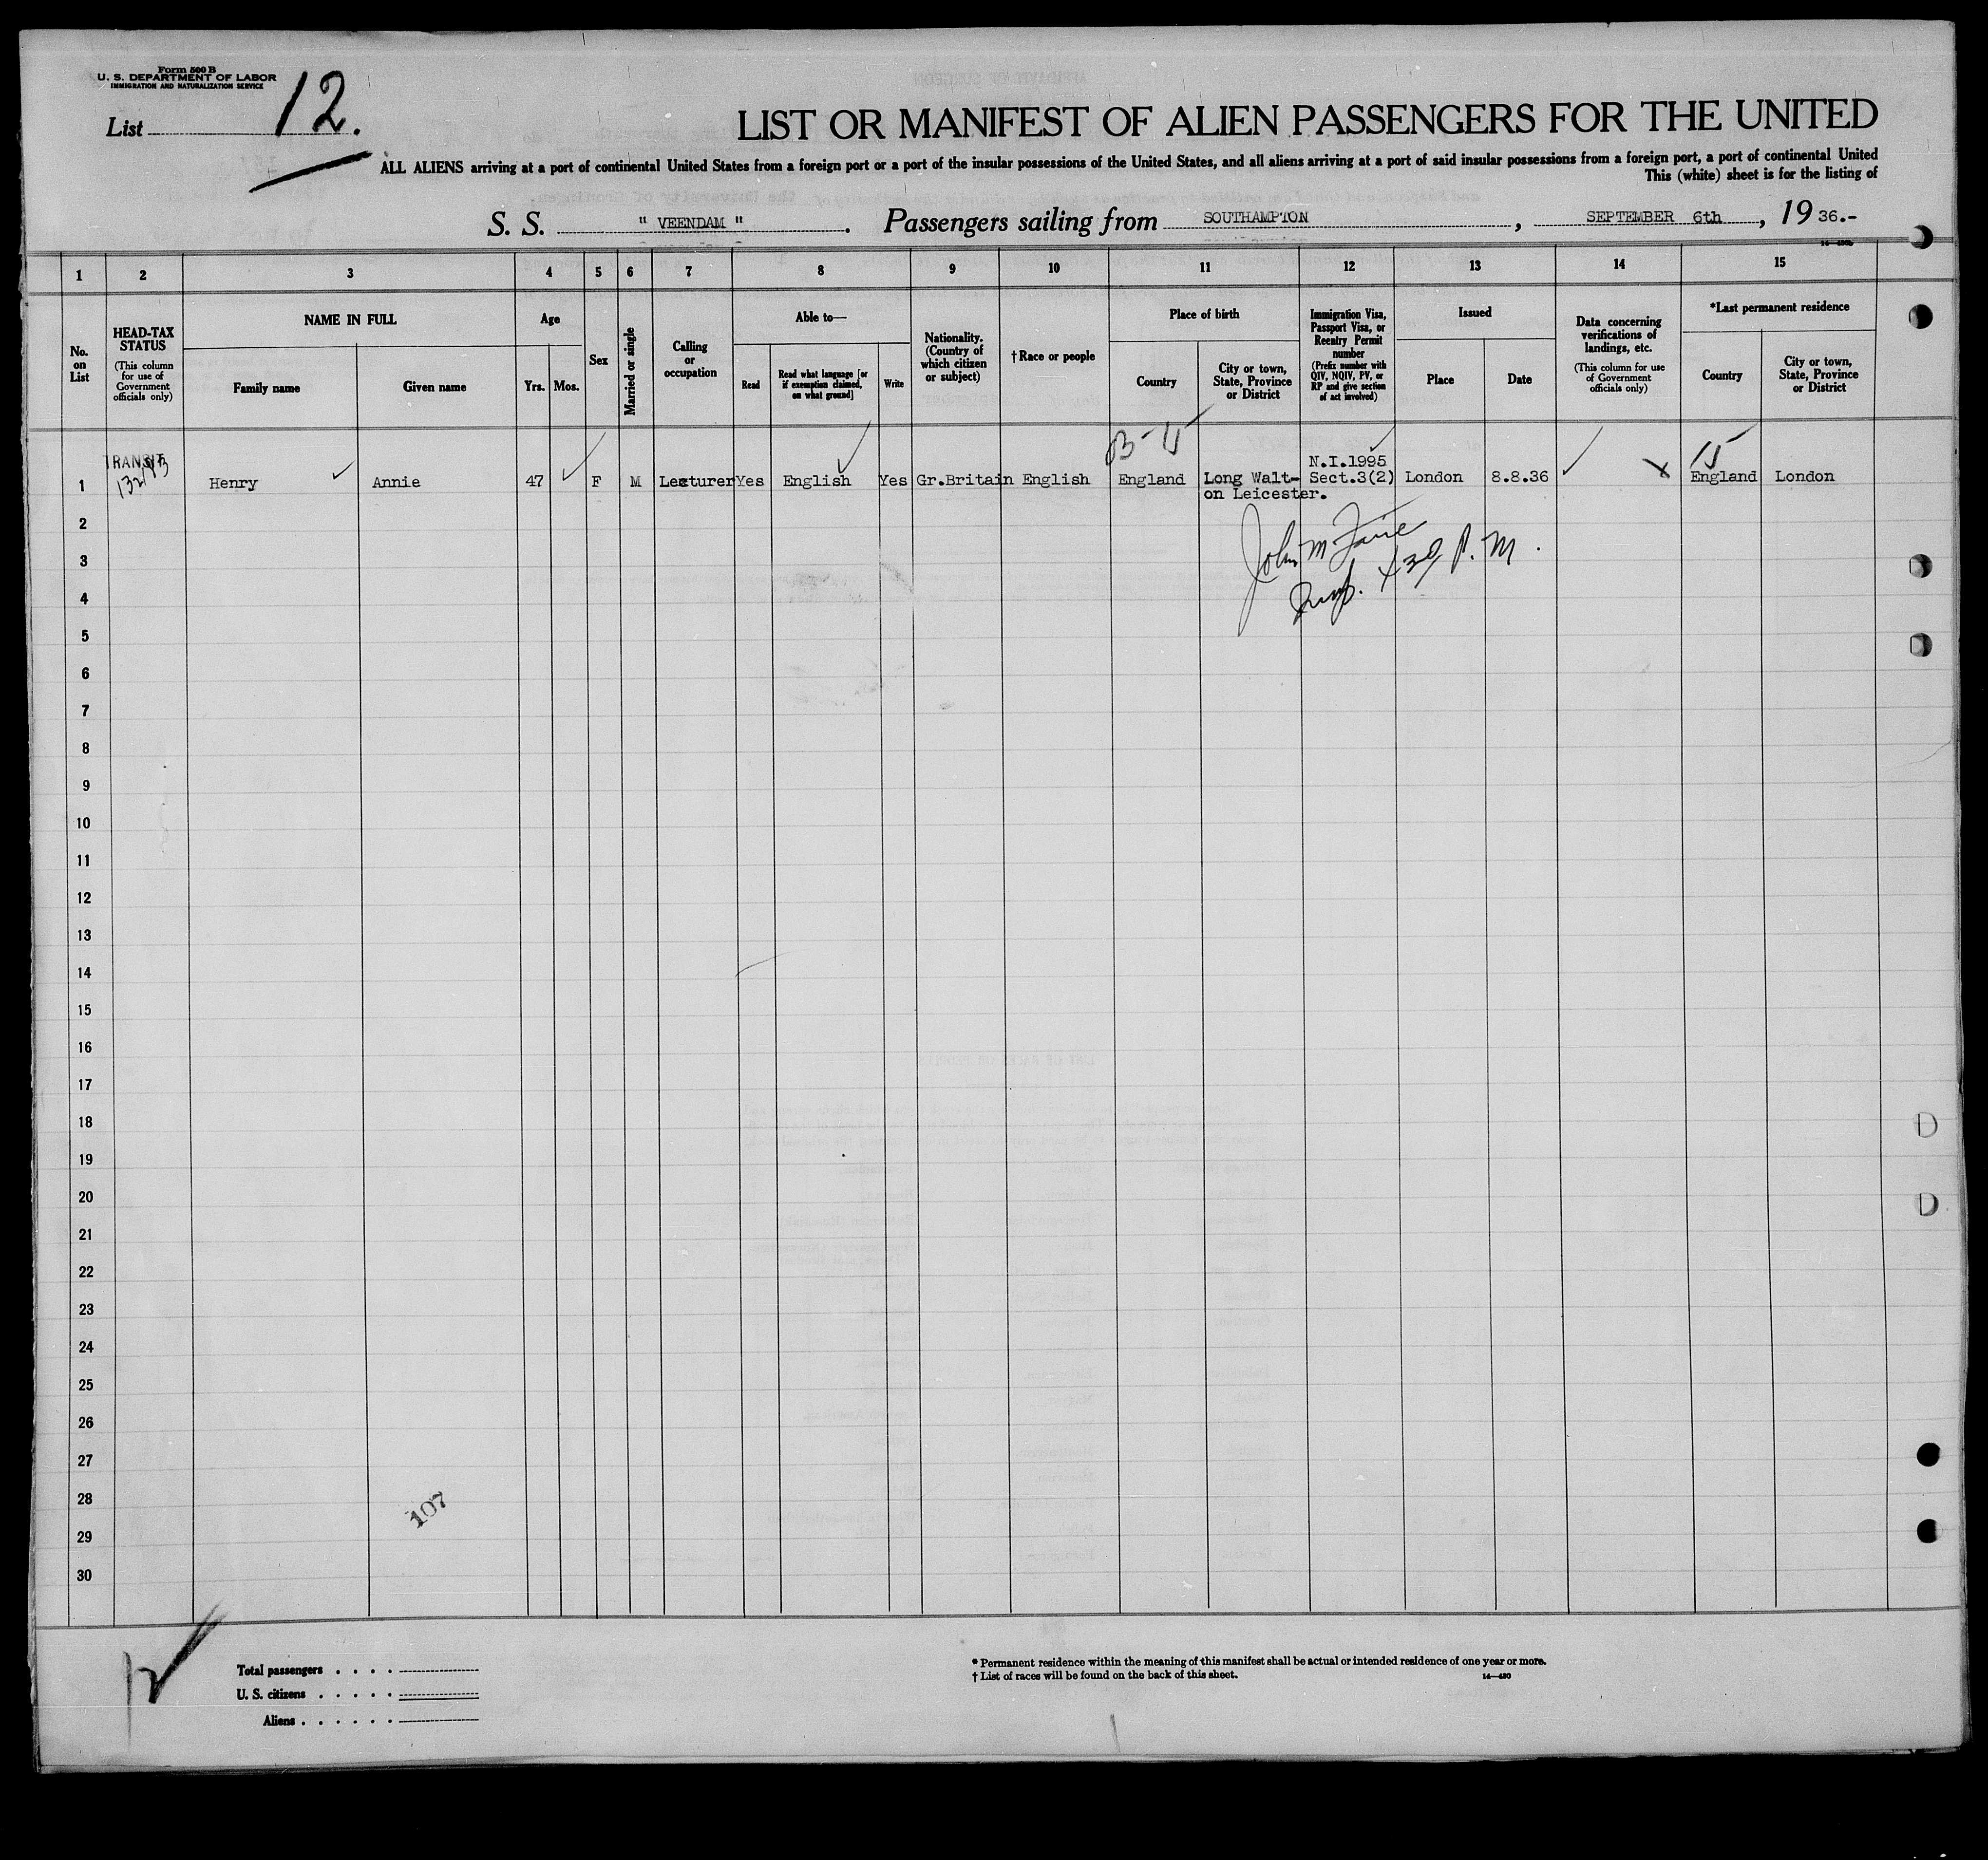 Form 500 B
U. S. DEPARTMENT OF LABOR
IMMIGRATION AND NATURALIZATION SERVICE
List 12.
LIST OR MANIFEST OF ALIEN PASSENGERS FOR THE UNITED
ALL ALIENS arriving at a port of continental United States from a foreign port or a port of the insular possessions of the United States, and all aliens arriving at a port of said insular possessions from a foreign port, a port of continental United
This (white) sheet is for the listing of
S. S. " VEENDAM ". Passengers sailing from SOUTHAMPTON, SEPTEMBER 6th, 1936.-
1 2 3 4 5 6 7 8 9 10 11 12 13 14 15
No. on List
HEAD-TAX STATUS
(This column for use of Government officials only)
NAME IN FULL
Family name
Given name
Age
Yrs.
Mos.
Sex
Married or single
Calling or occupation
Able to—
Read
Read what language [or if exemption claimed, on what ground]
Write
Nationality. (Country of which citizen or subject)
†Race or people
Place of birth
Country
City or town, State, Province or District
Immigration Visa, Passport Visa, or Reentry Permit number
(Prefix number with QIV, NQIV, PV, or RP and give section of act involved)
Issued
Place
Date
Data concerning verifications of landings, etc.
(This column for use of Government officials only)
*Last permanent residence
Country
City or town, State, Province or District
TRANSIT
B-15
15
N.I.1995
1 Henry Annie 47 F M Lecturer Yes English Yes Gr.Britain English England Long Walt- Sect.3(2) London 8.8.36 x England London
on Leicester.
2
3
P. M.
4
5
6
7
8
9
10
11
12
13
14
15
16
17
18
19
20
21
22
23
24
25
26
27
28
107
29
30
12
Total passengers . . . .
U. S. citizens . . . . .
Aliens . . . . . .
* Permanent residence within the meaning of this manifest shall be actual or intended residence of one year or more.
† List of races will be found on the back of this sheet.
14—430